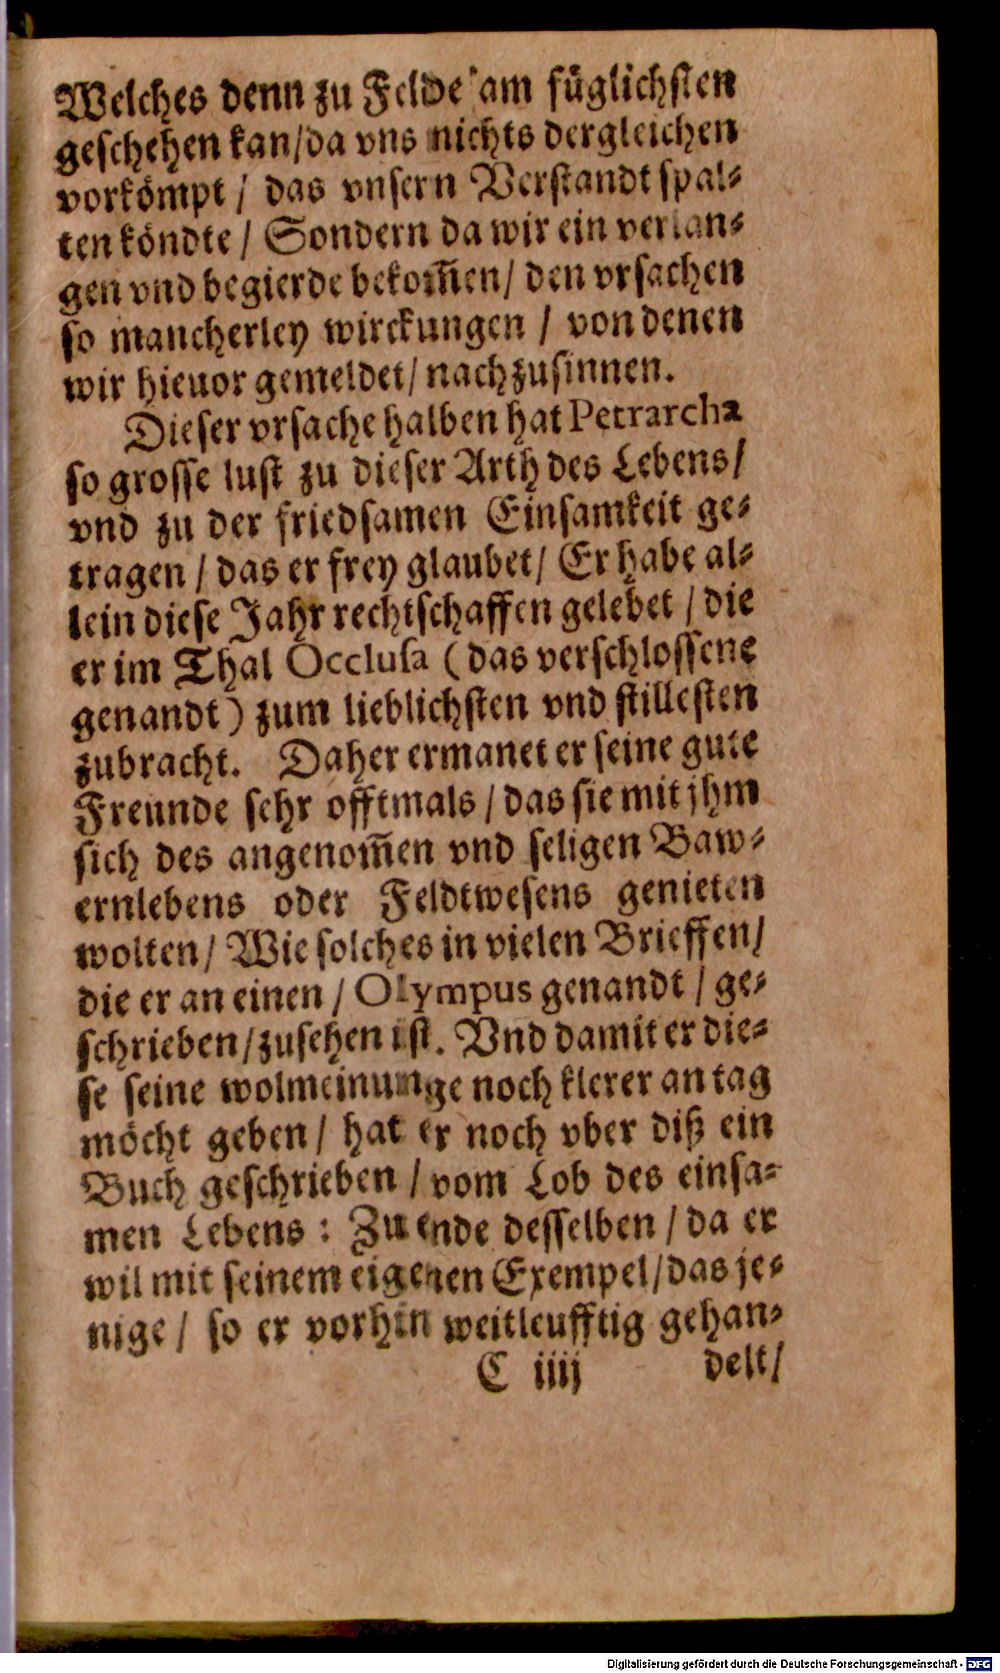 Welches denn zu Felde am füglichsten
geschehen kan/da vns nichts dergleichen
vorkömpt / das vnsern Verstandt spal-
ten köndte / Sondern da wir ein verlan-
gen vnd begierde bekom̃en/ den vrsachen
so mancherley wirckungen / von denen
wir hieuor gemeldet/ nachzusinnen.
Dieser vrsache halben hat Petrarcha
so grosse lust zu dieser Arth des Lebens/
vnd zu der friedsamen Einsamkeit ge-
tragen / das er frey glaubet/ Er habe al-
lein diese Jahr rechtschaffen gelebet / die
er im Thal Occlusa (das verschlossene
genandt) zum lieblichsten vnd stillesten
zubracht. Daher ermanet er seine gute
Freunde sehr offtmals / das sie mit jhm
sich des angenom̃en vnd seligen Baw-
ernlebens oder Feldtwesens genieten
wolten/ Wie solches in vielen Brieffen/
die er an einen / Olympus genandt / ge-
schrieben/zusehen ist. Vnd damit er die-
se seine wolmeinunge noch klerer an tag
möcht geben/ hat er noch vber diß ein
Buch geschrieben / vom Lob des einsa-
men Lebens : Zu ende desselben / da er
wil mit seinem eigenen Exempel/das je-
nige / so er vorhin weitleufftig gehan-
C iiij delt/
Digitalisierung gefördert durch die Deutsche Forschungsgemeinschaft - DFG